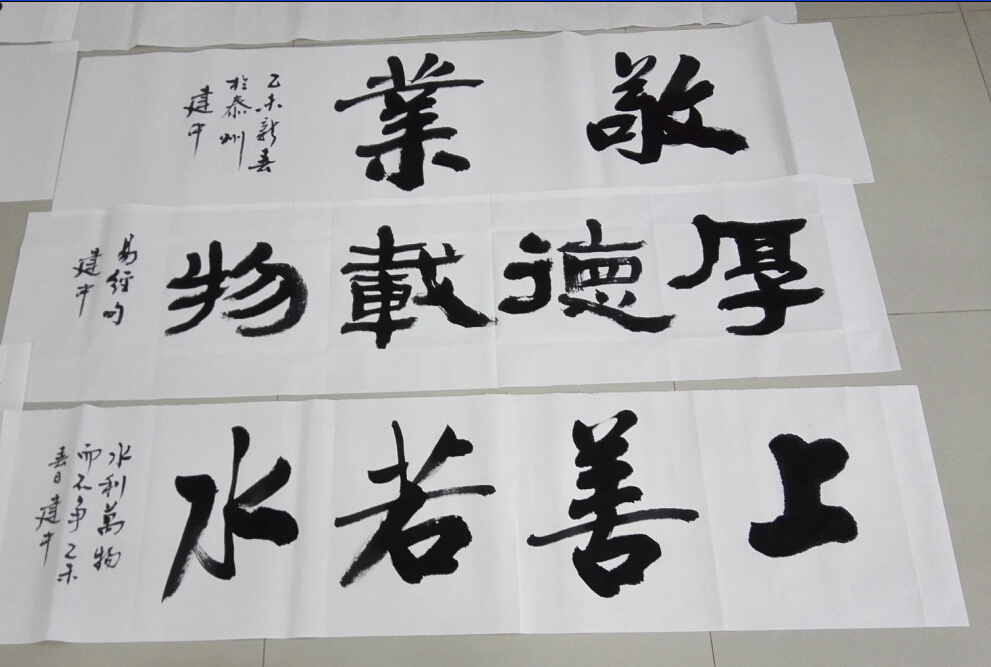 敬業
乙未新春
於泰州
建中
厚德載物
易經句
建中
上善若水
水利萬物
而不争乙未
春日建中